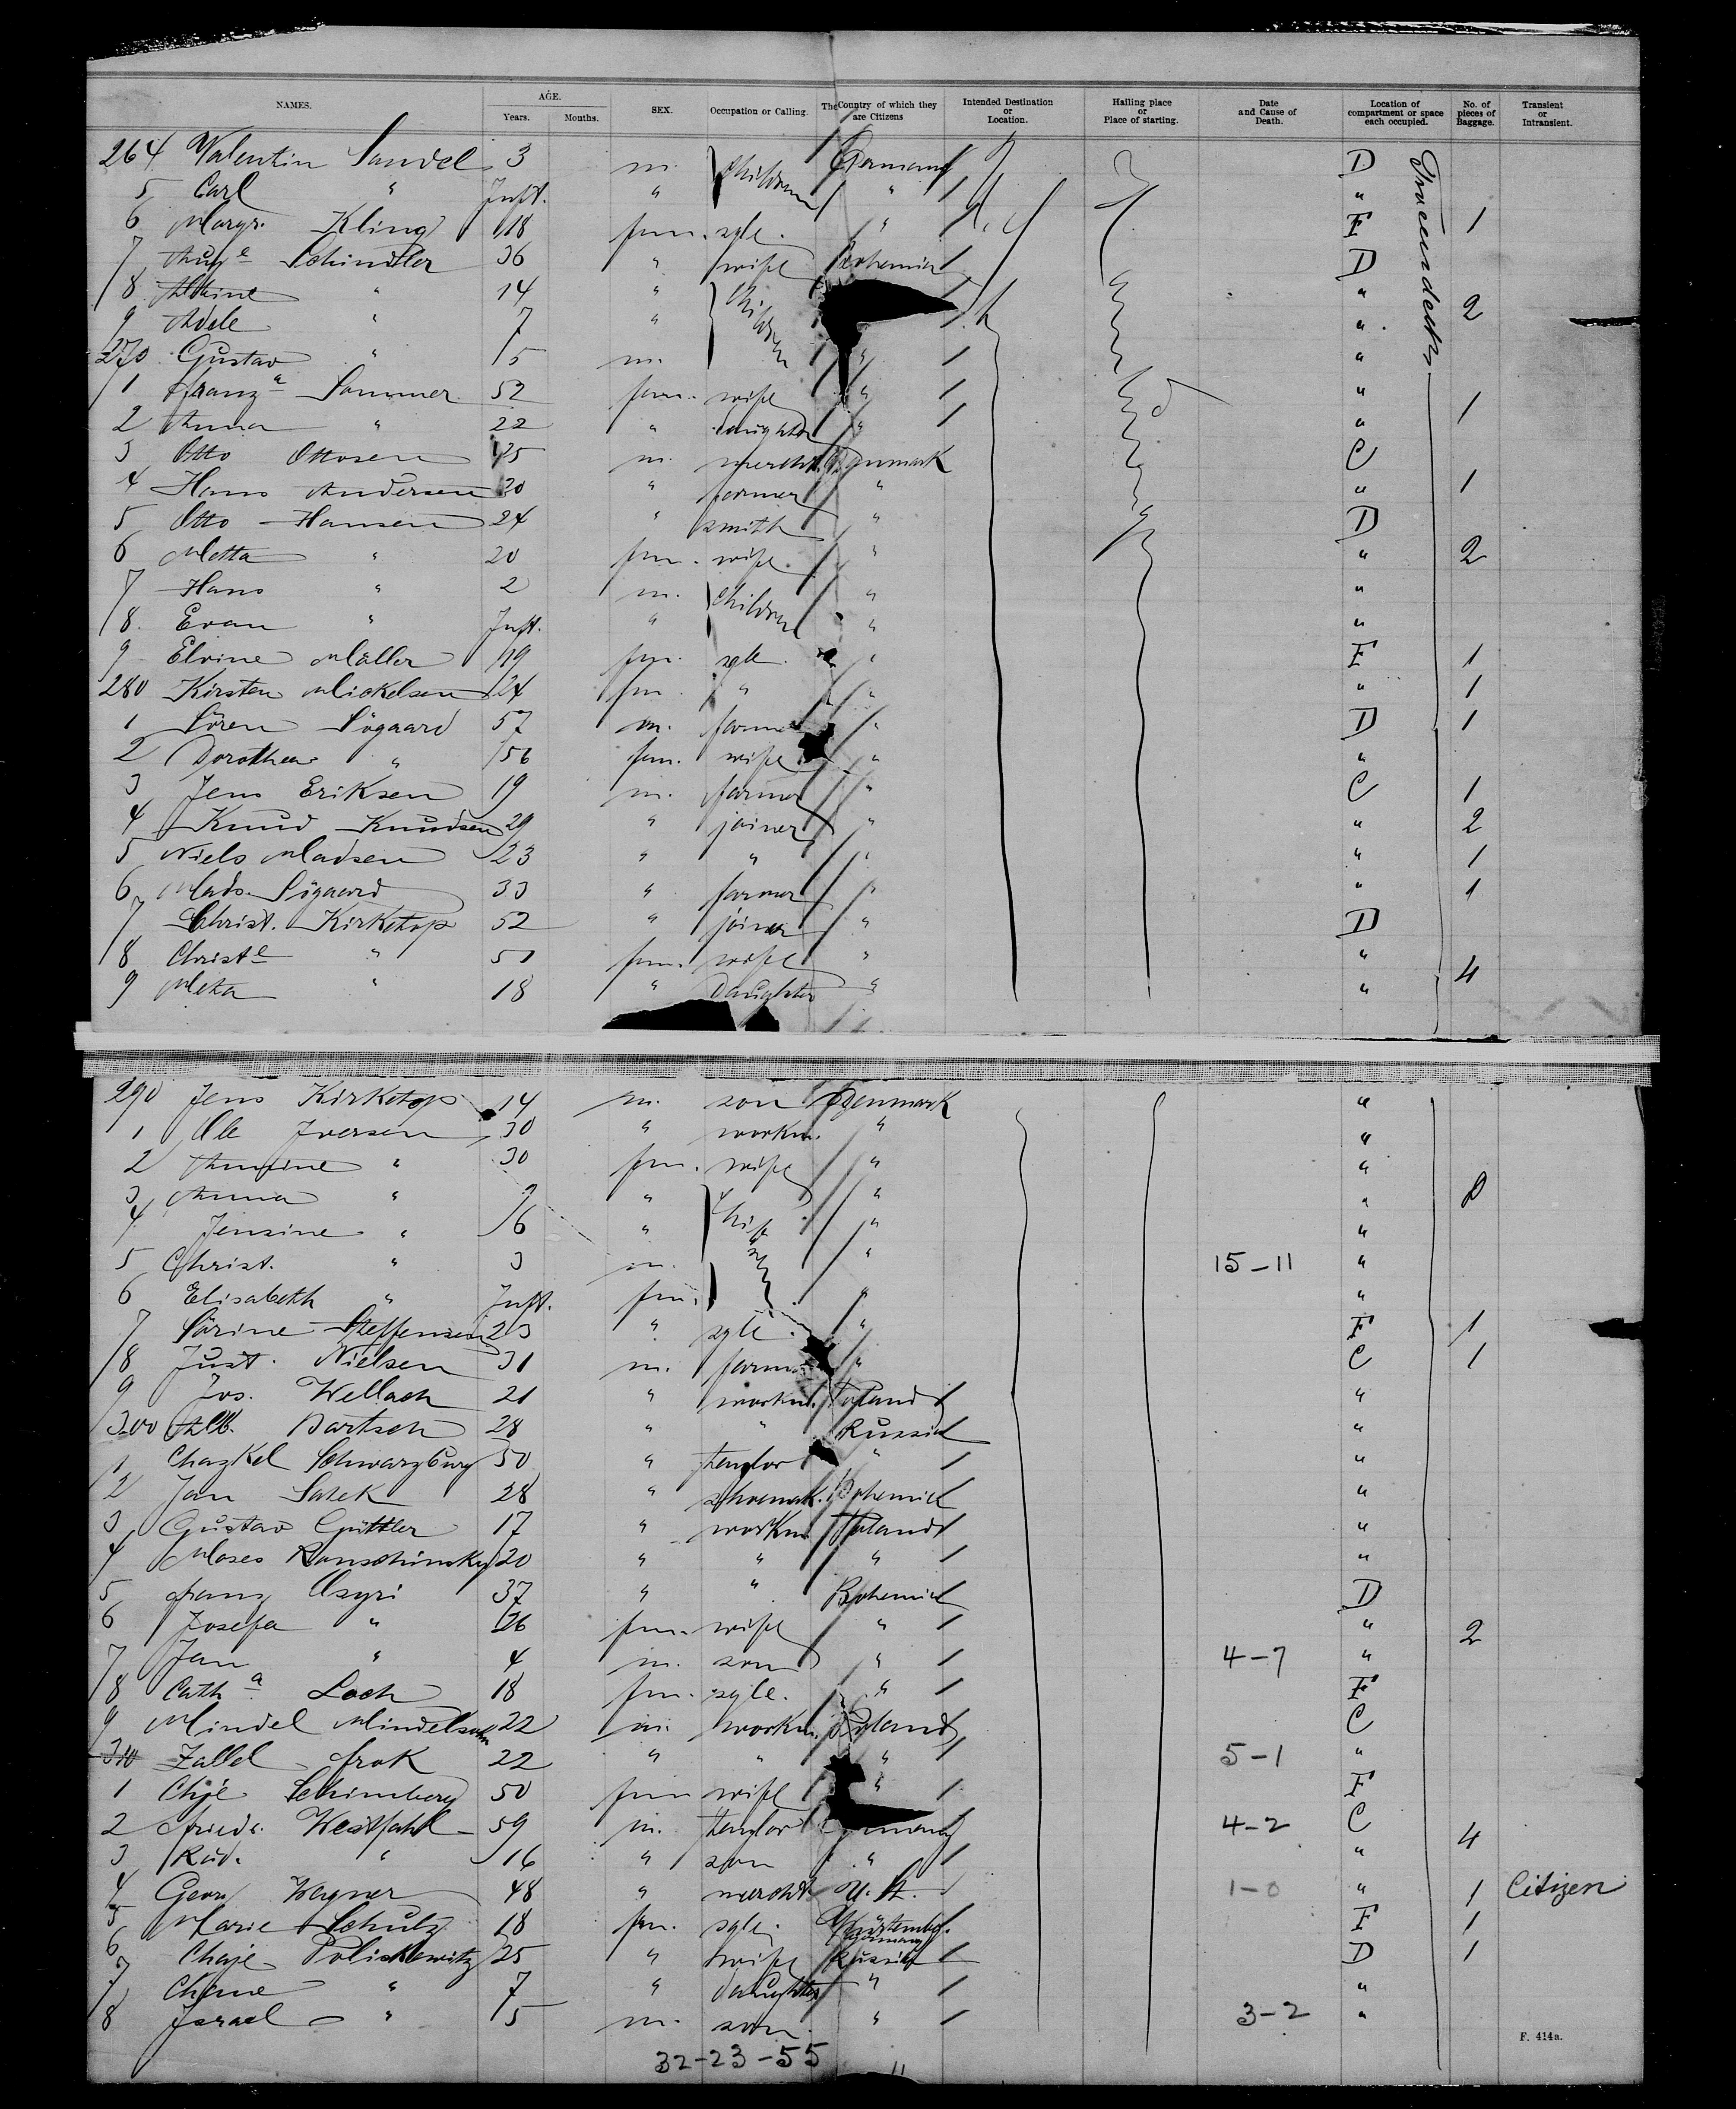 NAMES. AGE. Years. Months. SEX. Occupation or Calling. The Country of which they are Citizens Intended Destination or Location. Hailing place or Place of starting. Date and Cause of Death. Location of compartment or space each occupied. No. of pieces of Baggage. Transient or Intransient.
264 Valentin Sandel 3 m. Children Germany D
5 Carl " Inft. " " "
6 Margr. Kling 18 fem. sgle. " F 1
7 Aug e Schindler 36 " wife Bohemia D
8 " 14 " Children " 2
9 Adele " 7 " "
270 Gustav " 5 m. " "
1 Franz a Sommer 52 fem. wife " " 1
2 Anna " 22 " daughter " "
3 Otto Ottosen 25 m. mercht. Denmark C
4 Hans Andersen 20 " farmer " " 1
5 Otto Hansen 24 " smith " D
6 Metta " 20 fem. wife " " 2
7 Hans " 2 m. Children " "
8 Evan " Inft. " " "
9 Elvine Möller 19 fem. sgle. " F 1
280 Kirsten Mickelsen 24 fm. " " " 1
1 Sören Sögaard 57 m. farmer " D 1
2 Dorothea " 56 fem. wife " "
3 Jens Eriksen 19 m. farmer " C 1
4 Knud Knudsen 29 " joiner " " 2
5 Niels Madsen 23 " " " " 1
6 Mads Sögaard 33 " farmer " " 1
7 Christ. Kirketop 52 " joiner " D
8 Christ e " 51 fem. wife " " 4
9 Meta " 18 " Daughter " "
290 Jens Kirketop 14 m. son Denmark "
1 Ole Iversen 30 " workm. " "
2 " 30 fem. wife " "
3 Anna " 9 " Children " "
4 Jensine " 6 " " "
5 Christ. " 3 m. " 15-11 "
6 Elisabeth " Inft. fm. " "
7 Sörine Steffensen 23 " sgle. " F 1
8 Just. Nielsen 31 m. farmer " C 1
9 Jos. Wellach 21 " workm. Poland "
300 Alb. Bartsch 28 " " Russia "
1 Chazkel Schwarzburg 50 " taylor " "
2 Jan Satek 28 " shoemak. Bohemia "
3 Gustav Güttler 17 " workm Poland "
4 Moses 20 " " " "
5 Franz 37 " " Bohemia D
6 Josefa " 26 fem. wife " " 2
7 Jan " 4 m. son " 4-7 "
8 Cath a Loch 18 fm. sgle. " F
9 Mindel Mindelsohn 22 m. workm. Poland C
310 Zallel Frok 22 " " " 5-1 "
1 Chje Schimberg 50 fem wife " F
2 Friedr. Westfahl 59 m. taylor Germany 4-2 C 4
3 Rud. " 16 " son " "
4 Georg Wagner 48 " mercht U. St. 1-0 " 1 Citizen
5 Marie Schulz 18 fm. sgle. Würtembg. Germany F 1
6 Chaje 25 " wife Russia D 1
7 Chane " 7 " daughter " "
8 Israel " 5 m. son. " 3-2 "
32-23-55 11
F. 414a.